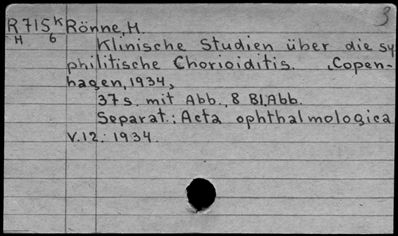 3
R715K Rönne, H.
H 6 Klinische Studien über die sy
philitische Chorioiditis. Copen-
hagen, 1934,
37 s. mit Abb., 8 Bl. Abb.
Separat.: Acta ophthalmologica
V.12: 1934.